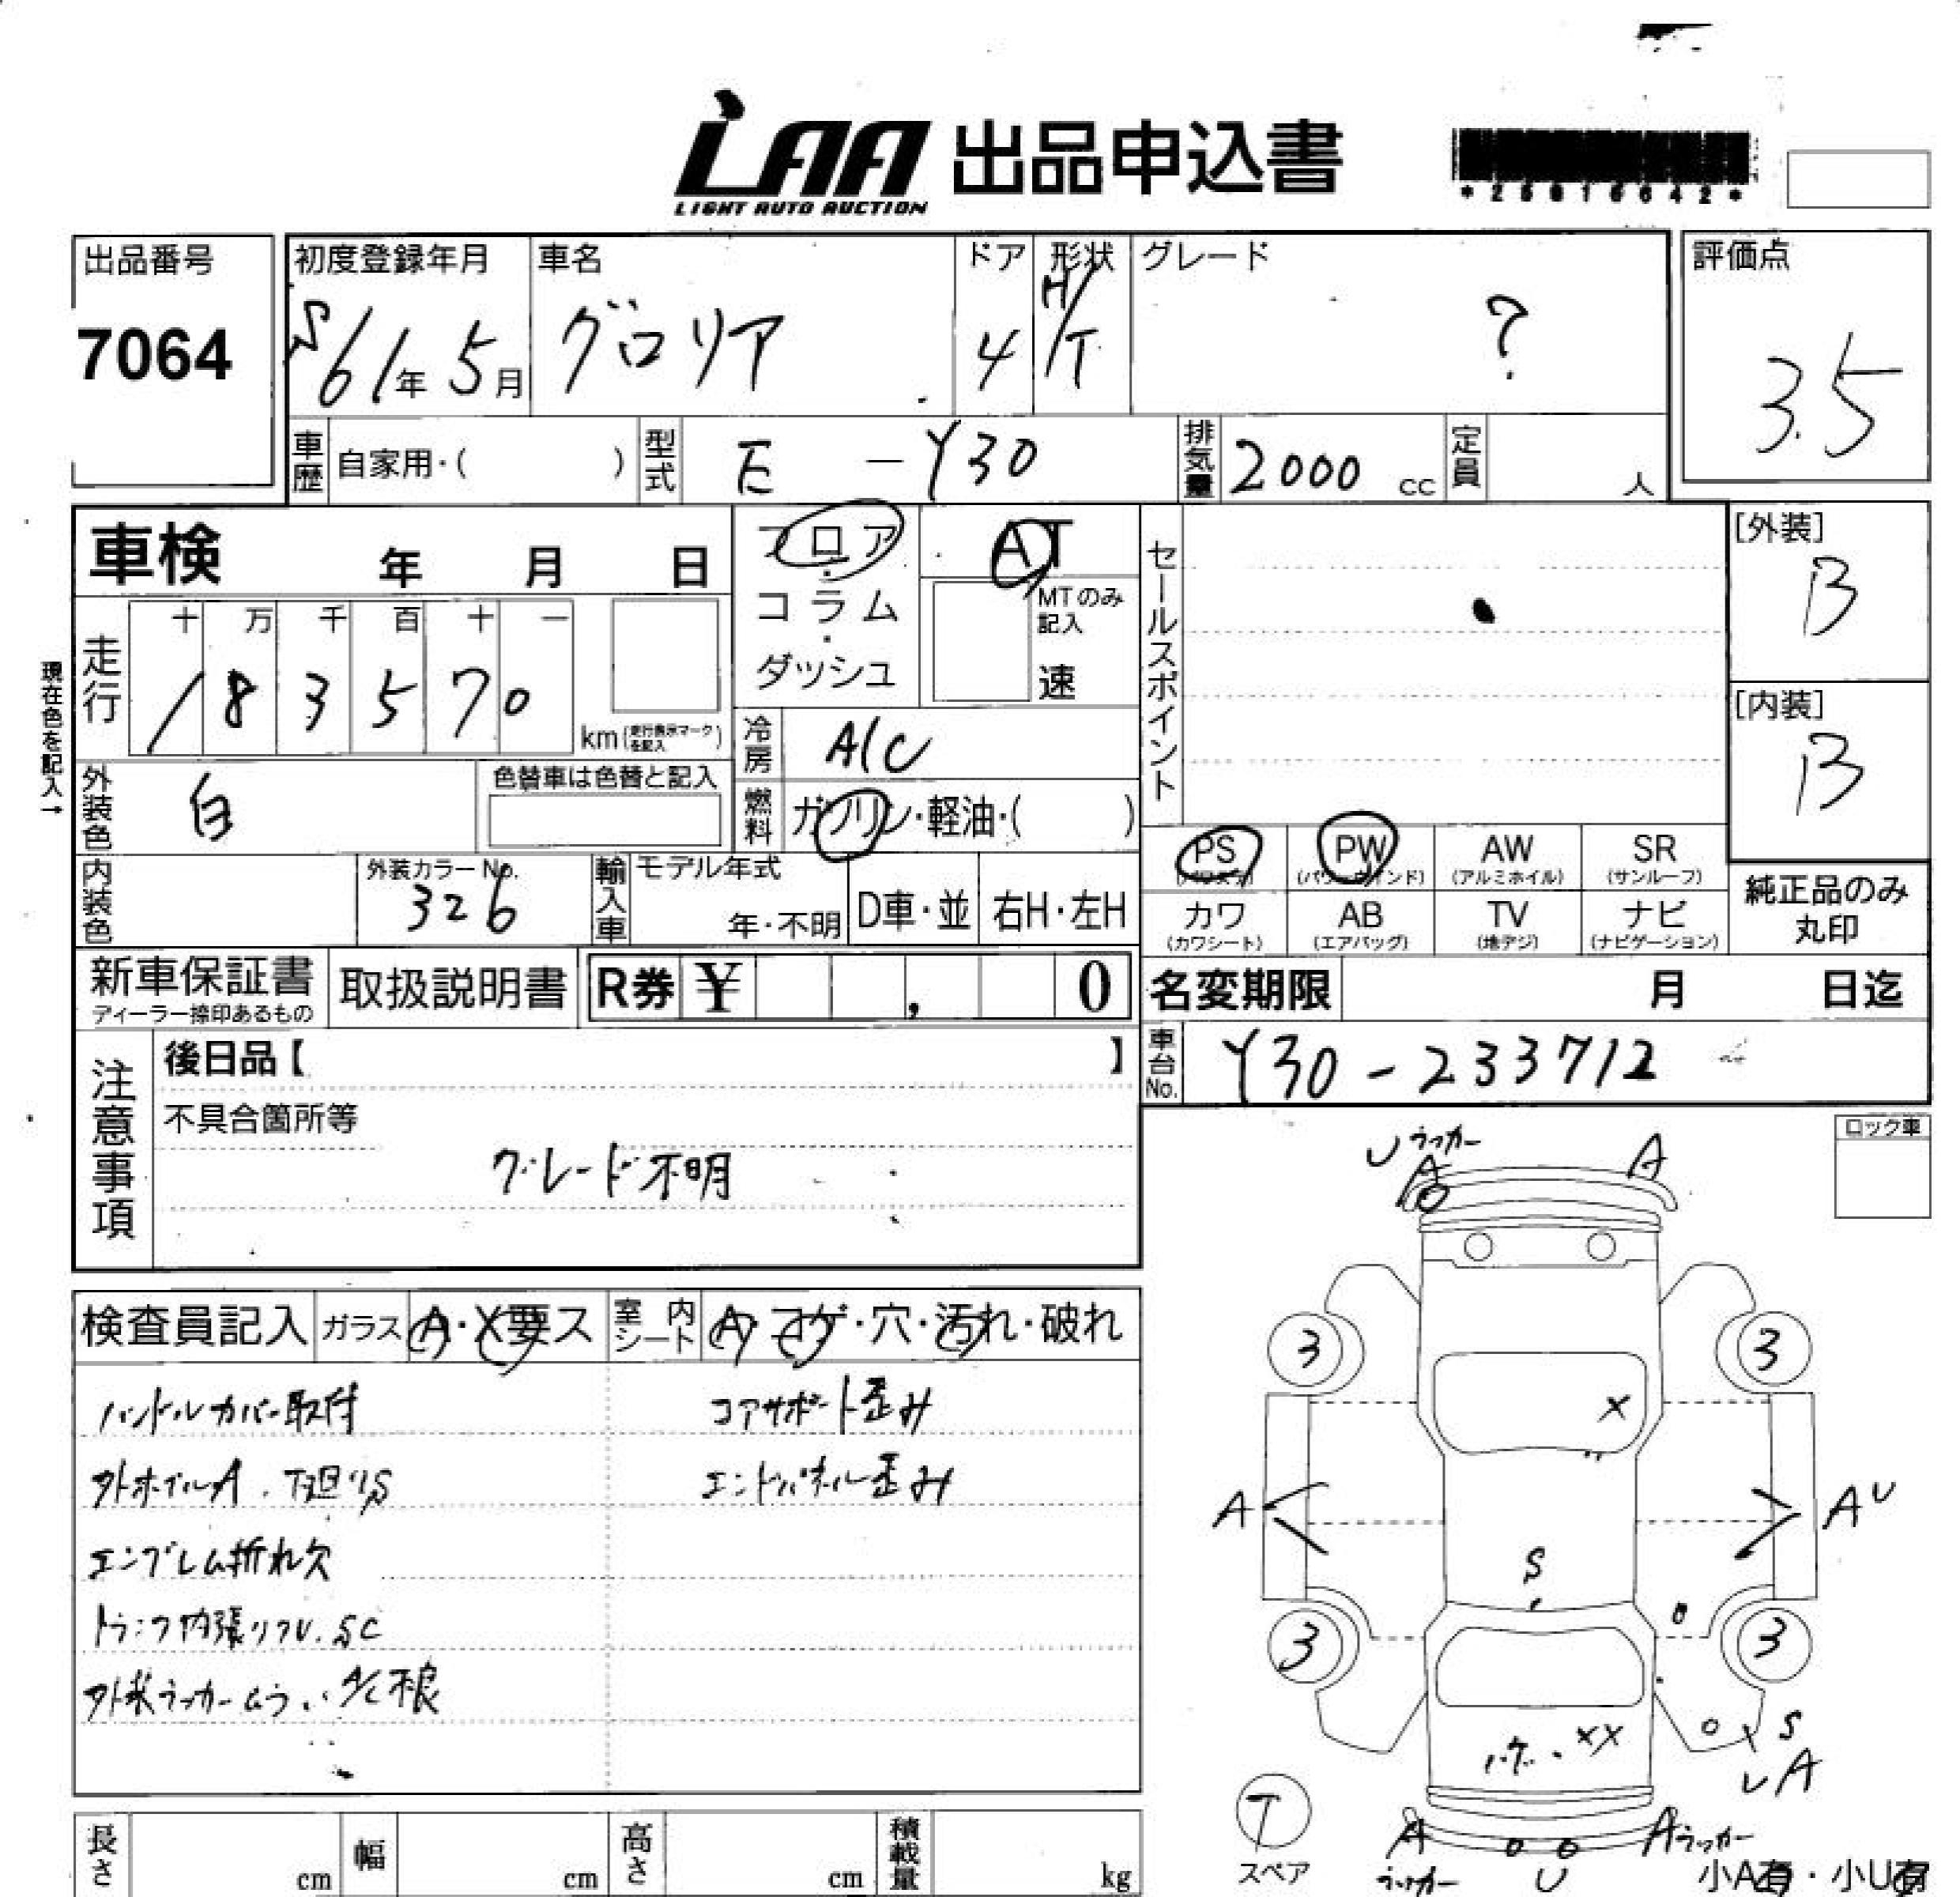 LAA 出品申込書
LIGHT AUTO AUCTION
出品番号
7064
初度登録年月
S61年 5月
車名
グロリア
ドア
4
形状
H/T
グレード
?
評価点
3.5
車歴 自家用・( )
型式 E -Y30
排気量 2000 cc
定員 人
車検 年 月 日
フロア・コラム・ダッシュ
AT
MTのみ記入
速
セールスポイント
[外装]
B
[内装]
B
現在色を記入→
走行
十 万 千 百 十 一
1 8 3 5 7 0
km(走行表示マークを記入)
冷房 A/C
燃料 ガソリン・軽油・( )
外装色 白
色替車は色替と記入
内装色
外装カラーNo.
326
輸入車
モデル年式
年・不明
D車・並
右H・左H
PS PW AW SR
(パワステ) (パワーウインド) (アルミホイル) (サンルーフ)
カワ AB TV ナビ
(カワシート) (エアバッグ) (地デジ) (ナビゲーション)
純正品のみ
丸印
新車保証書
ディーラー捺印あるもの
取扱説明書
R券 ¥ , 0
名変期限 月 日迄
車台No. Y30-233712
注意事項
後日品【 】
不具合箇所等
グレード不明
ロック車
検査員記入
ガラス A・X要ス
室内シート A・コゲ・穴・汚れ・破れ
ハンドルカバー取付
コアサポート歪み
外ホイルA. 下廻りS
エンドパネル歪み
エンブレム折れ欠
トランク内張りフU. SC
外装ラッカームラ. A/C不良
U ラッカー
A
A
3
3
X
A
A U
S
3
3
XX
S
U A
T
スペア
A
ラッカー
U
A ラッカー
小A有・小U有
長さ cm
幅 cm
高さ cm
積載量 kg